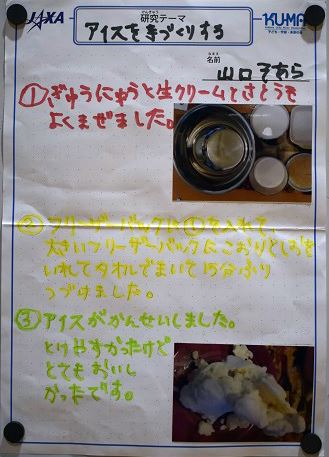 JAXA
けんきゅう
研究テーマ
KUMA
アイスを手づくりする
なまえ
名前
山口そあら
①ぎゅうにゅうと生クリームとさとうを
よくまぜました。
②フリーザーバックに①を入れて、
大きいフリーザーバックにこおりとしおを
いれてタオルでまいて15分ふり
つづけました。
③アイスがかんせいしました。
とけやすかったけど
とてもおいし
かったです。